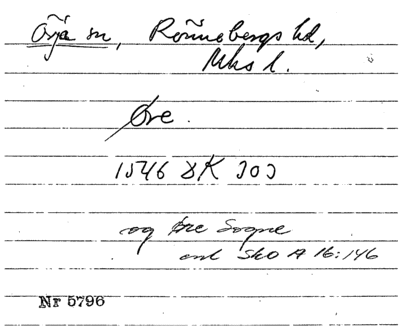 Öja sn, Rönnebergs hd,
Mhs l.
Øre.
1546 DK 303
og Øre Sogne
anl Sko A 16:146
Nr 5796